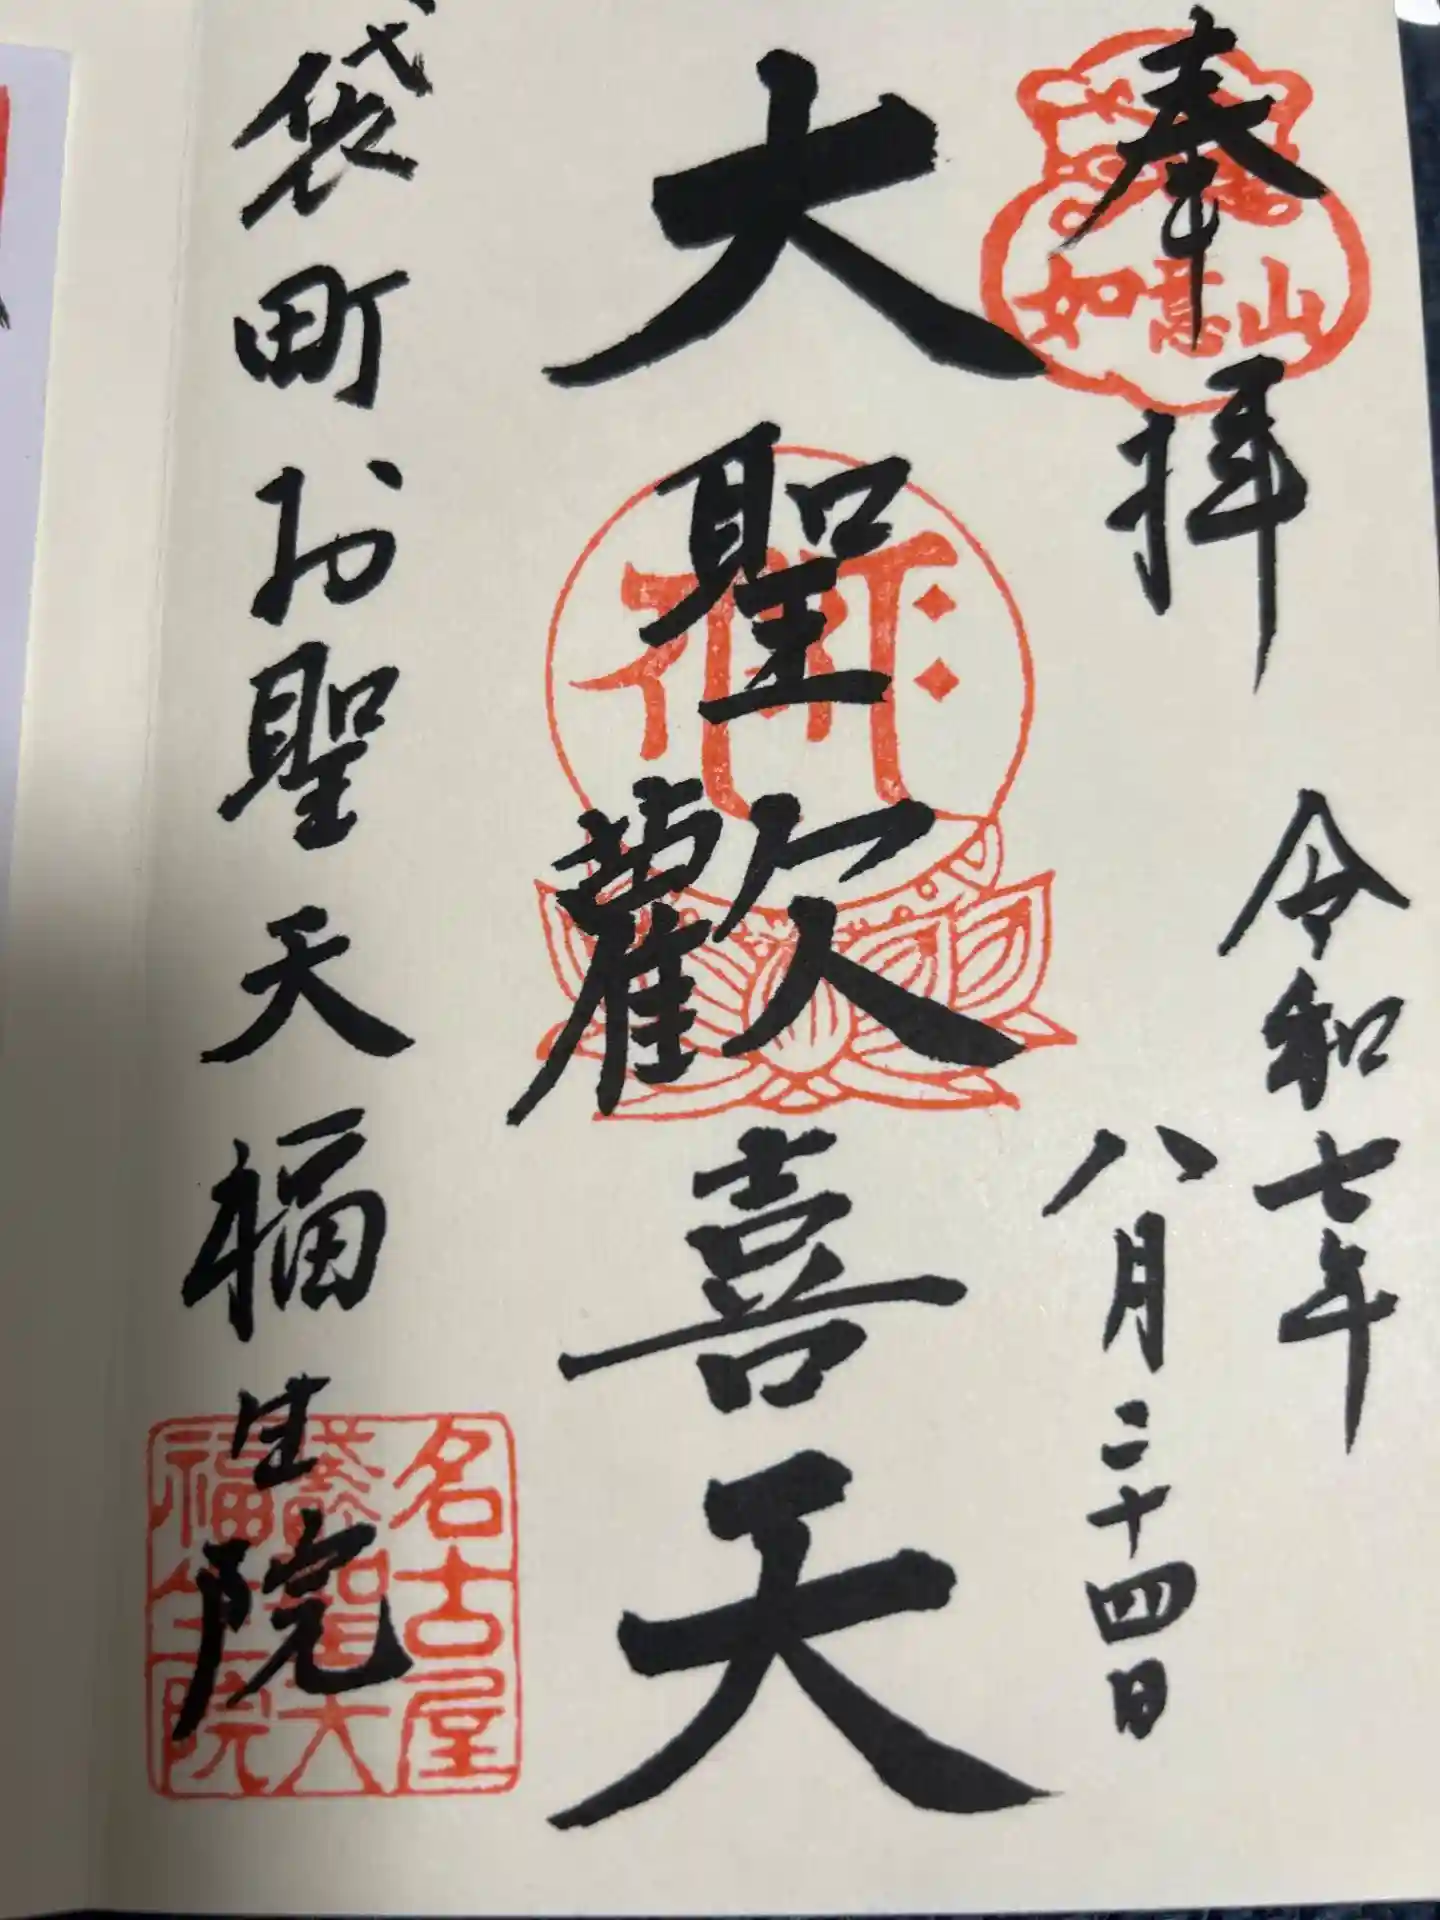 奉拝
如意山
令和七年
八月二十四日
大聖歡喜天
袋町お聖天福生院
名古屋
福生院